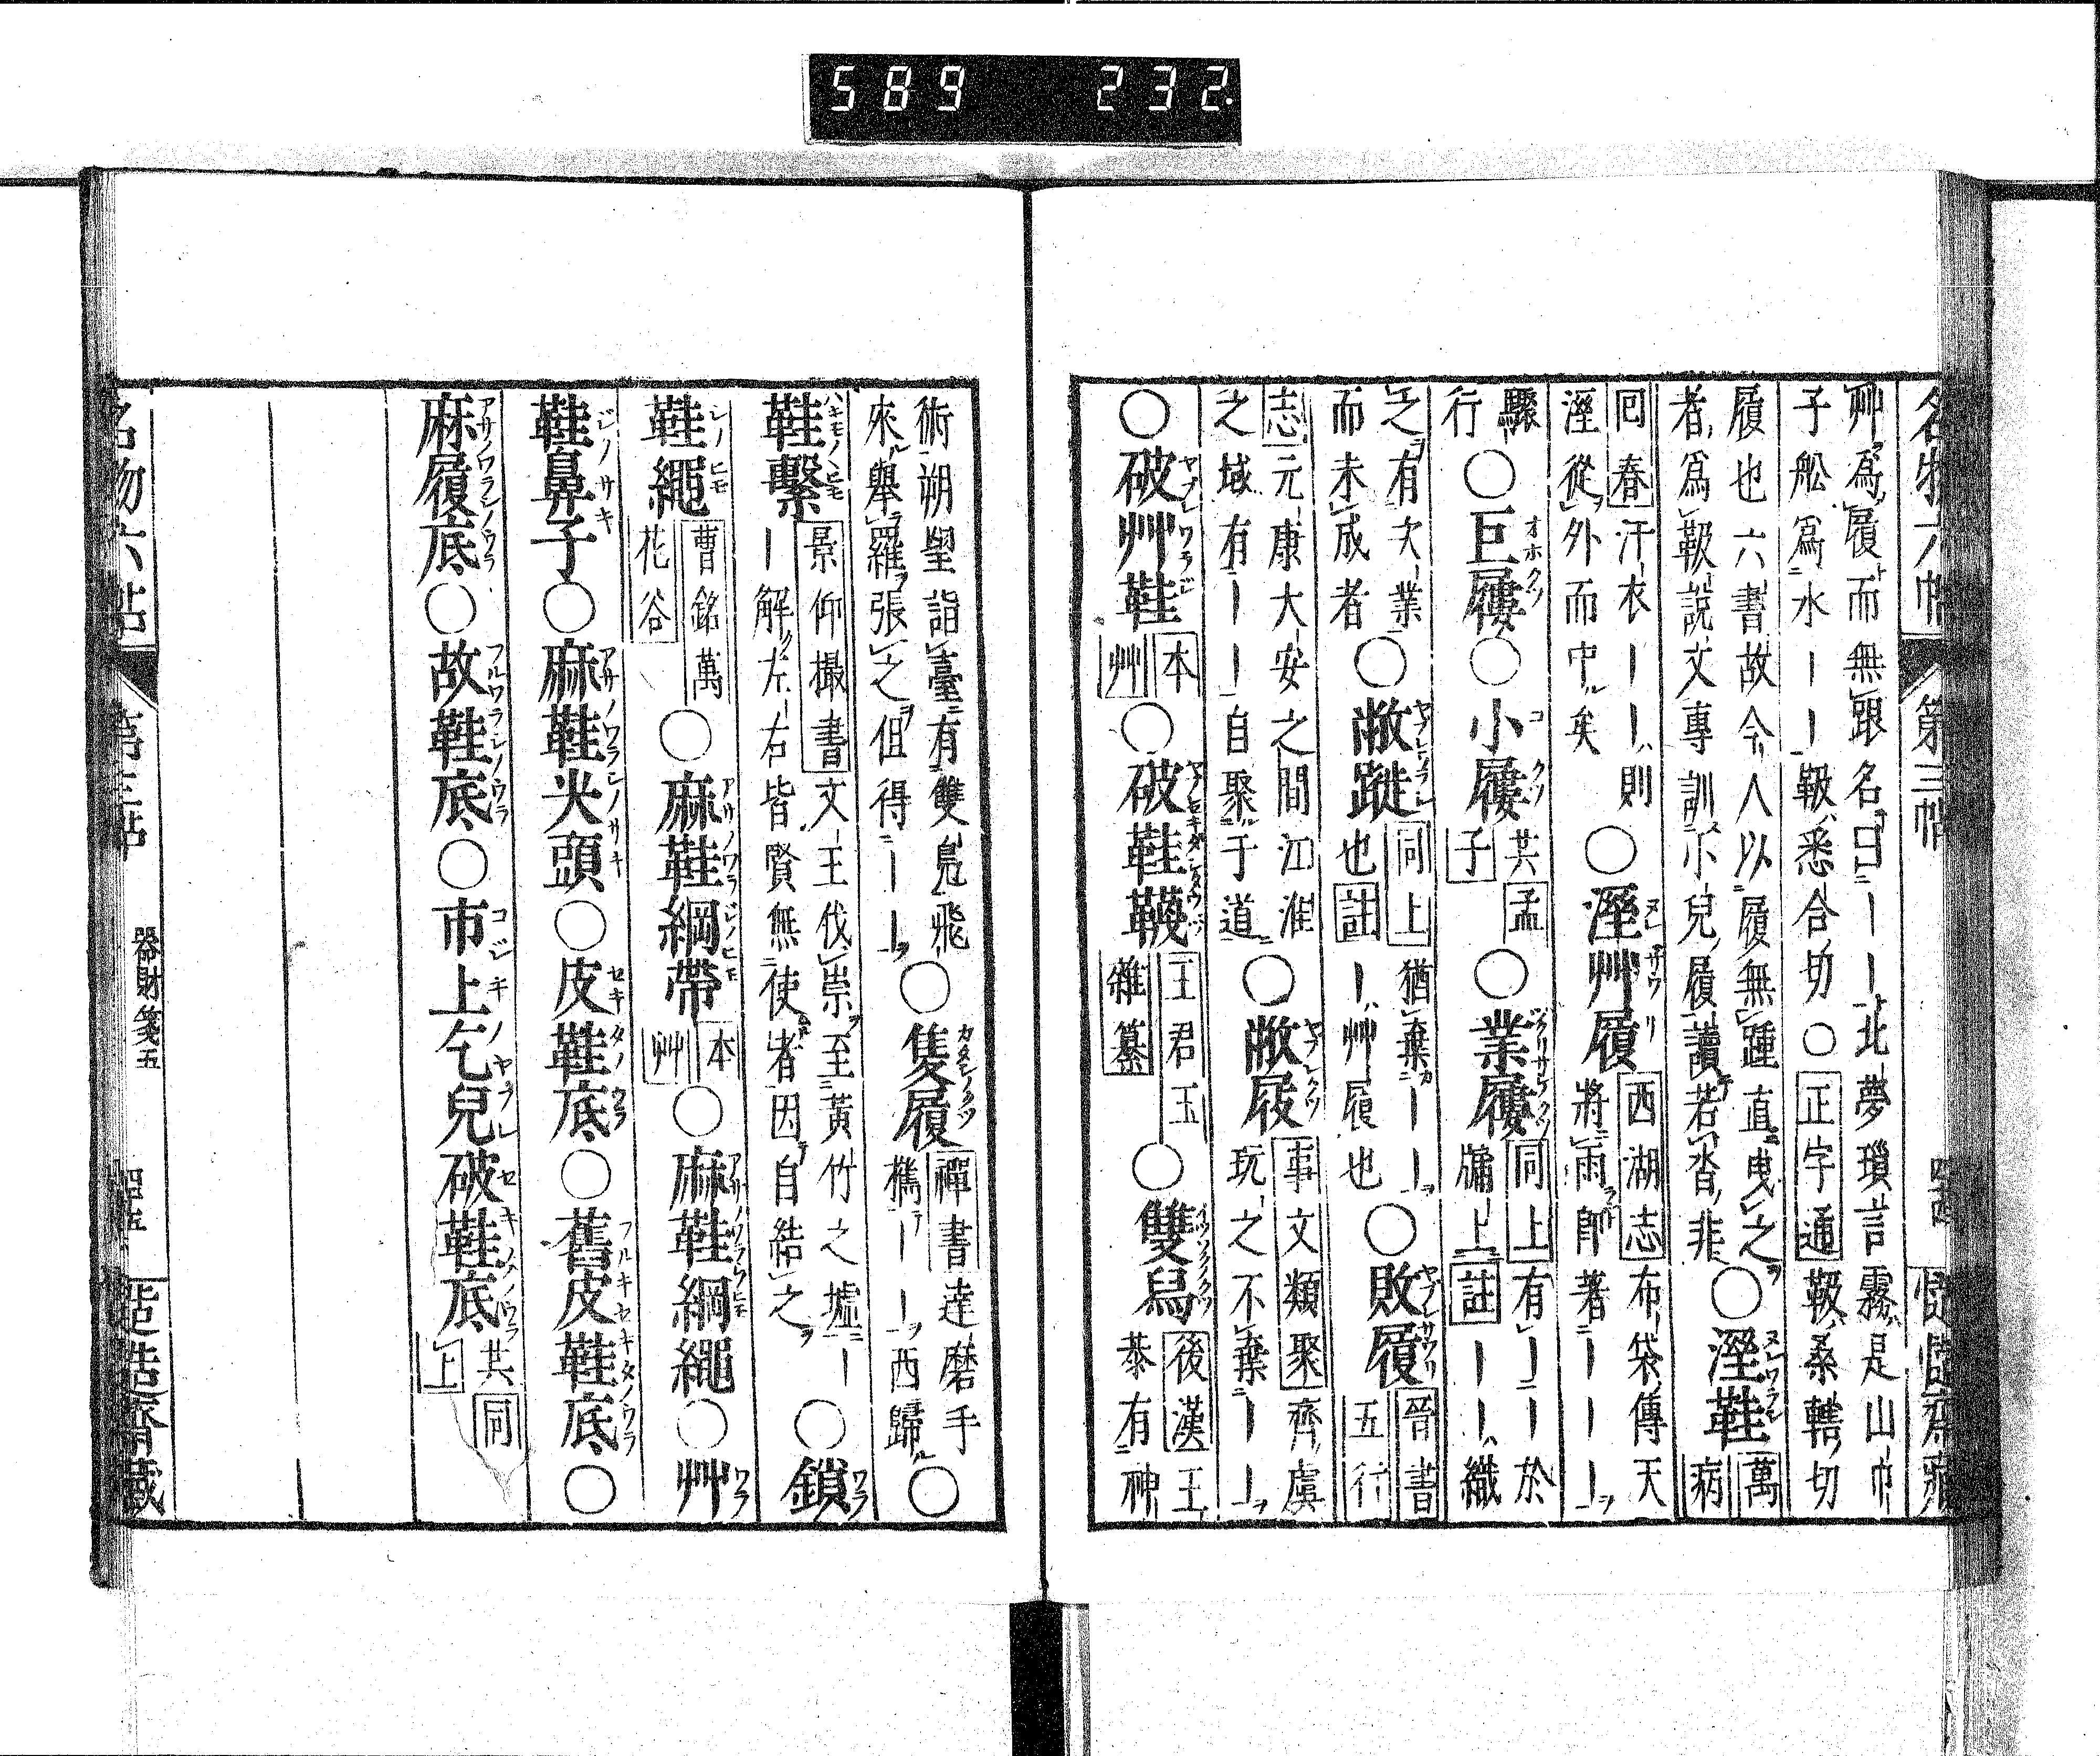 589 232
名物六帖 第三帖
艸爲履而無跟名曰｜｜北夢瑣言霧是山巾
子舩爲水｜｜靸悉合切○正字通靸桑轄切
履也六書故今人以履無踵直曳之
者爲靸說文專訓小兒履讀若沓非○溼鞋萬病
回春汗衣｜｜則
溼從外而中矣○溼艸履西湖志布袋傳天
將雨卽著｜｜｜
驟
行○巨屨○小屨共孟子○業屨同上有｜｜於
牖上註｜｜織
之有次業
而未成者○敝蹝同上猶棄｜｜
也註｜艸履也○敗履晉書五行
志元康大安之間江淮
之域有｜｜自聚于道○敝屐事文類聚齊虞
玩之不棄｜｜
○破艸鞋本艸○破鞋韈王君玉雜纂○雙舄後漢王
恭有神
術朔望詣臺有雙鳧飛
來舉羅張之但得｜｜○隻履禪書達磨手
攜｜｜西歸○
鞋繫景仰撮書文王伐崇至黃竹之墟｜
｜解左右皆賢無使者因自結之○鎖
鞋繩曹銘萬花谷○麻鞋綱帶本艸○麻鞋綱繩○艸
鞋鼻子○麻鞋尖頭○皮鞋底○舊皮鞋底○
麻履底○故鞋底○市上乞兒破鞋底共同上
名物六帖 第三帖 器財箋五